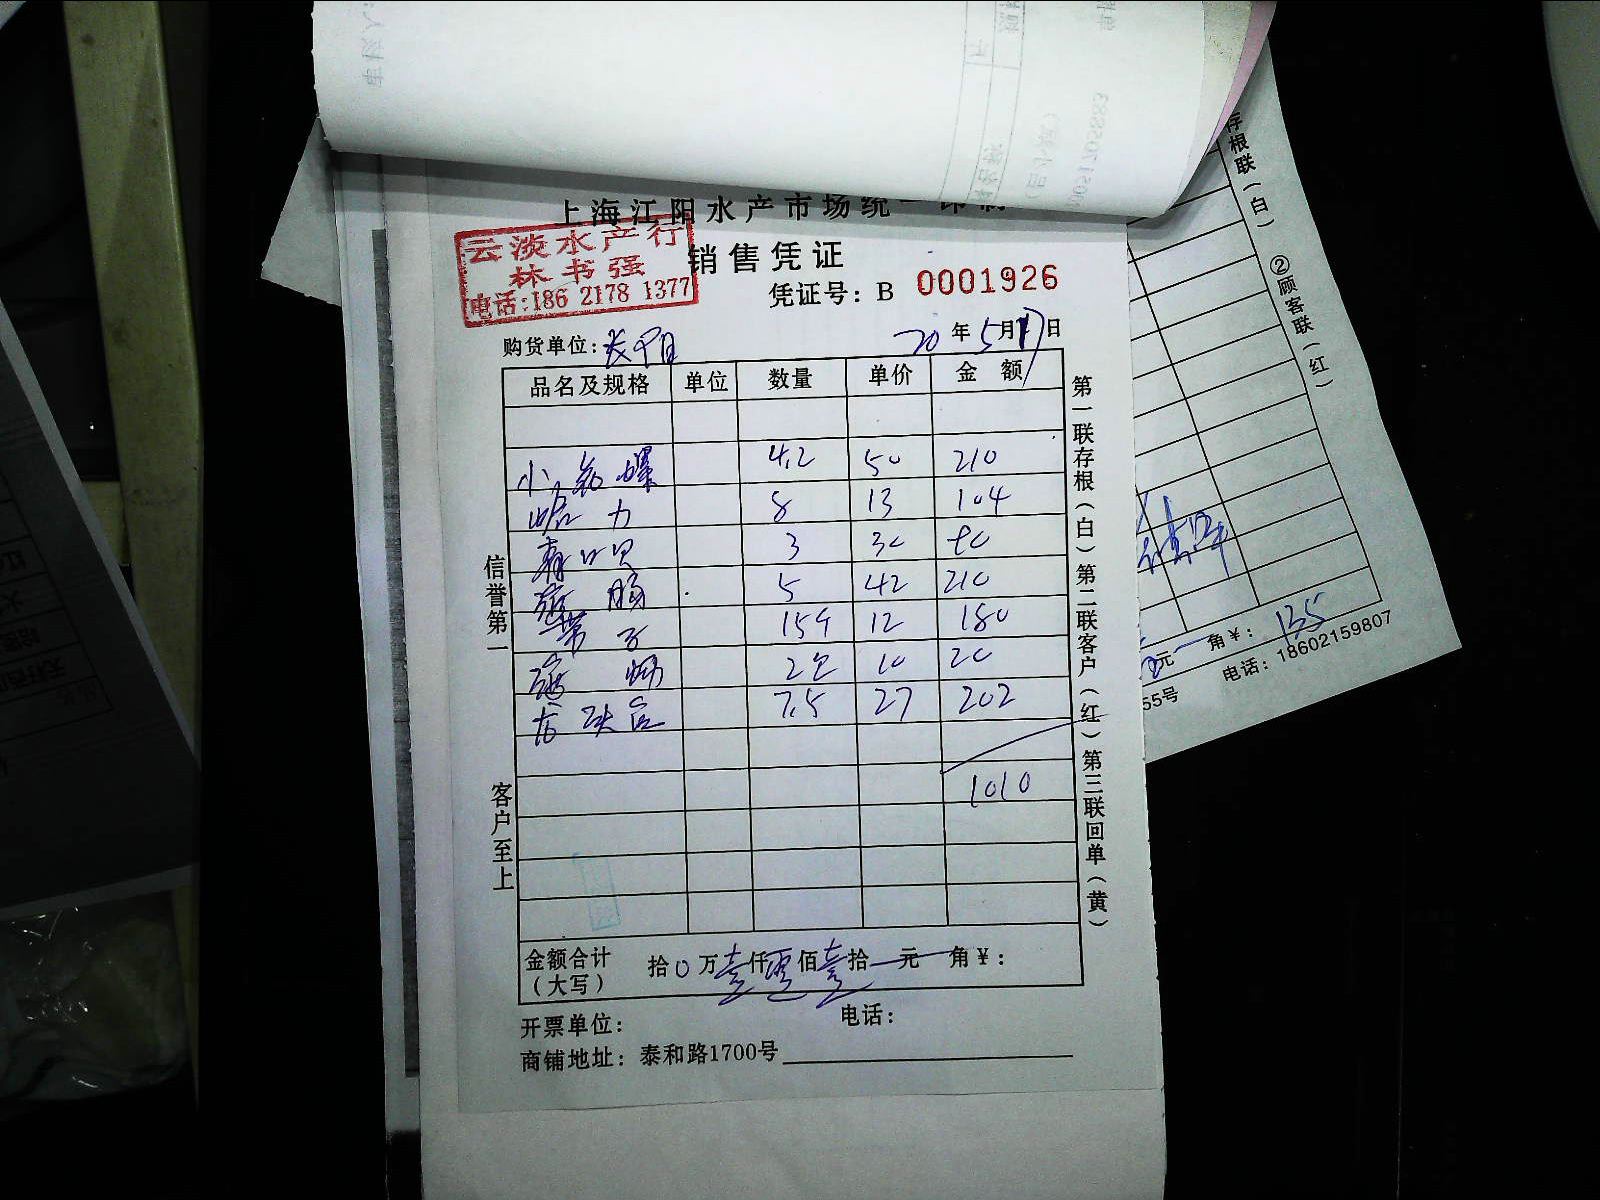 上海江阳水产市场统一印制
云淡水产行
林书强
电话:186 2178 1377
销售凭证
凭证号: B 0001926
购货单位:
20 年 5 月 17 日
品名及规格 单位 数量 单价 金 额
4.2 50 210
蛤力 8 13 104
青口贝 3 30 90
5 42 210
带子 15个 12 180
2包 10 20
7.5 27 202
1010
金额合计
(大写)
拾 0 万 壹 仟 零 佰 壹 拾 元 角 ¥:
开票单位:
电话:
商铺地址: 泰和路1700号
信誉第一
客户至上
第一联存根(白)第二联客户(红)第三联回单(黄)
存根联(白) ②顾客联(红)
元 角 ¥: 135
55号 电话: 18602159807